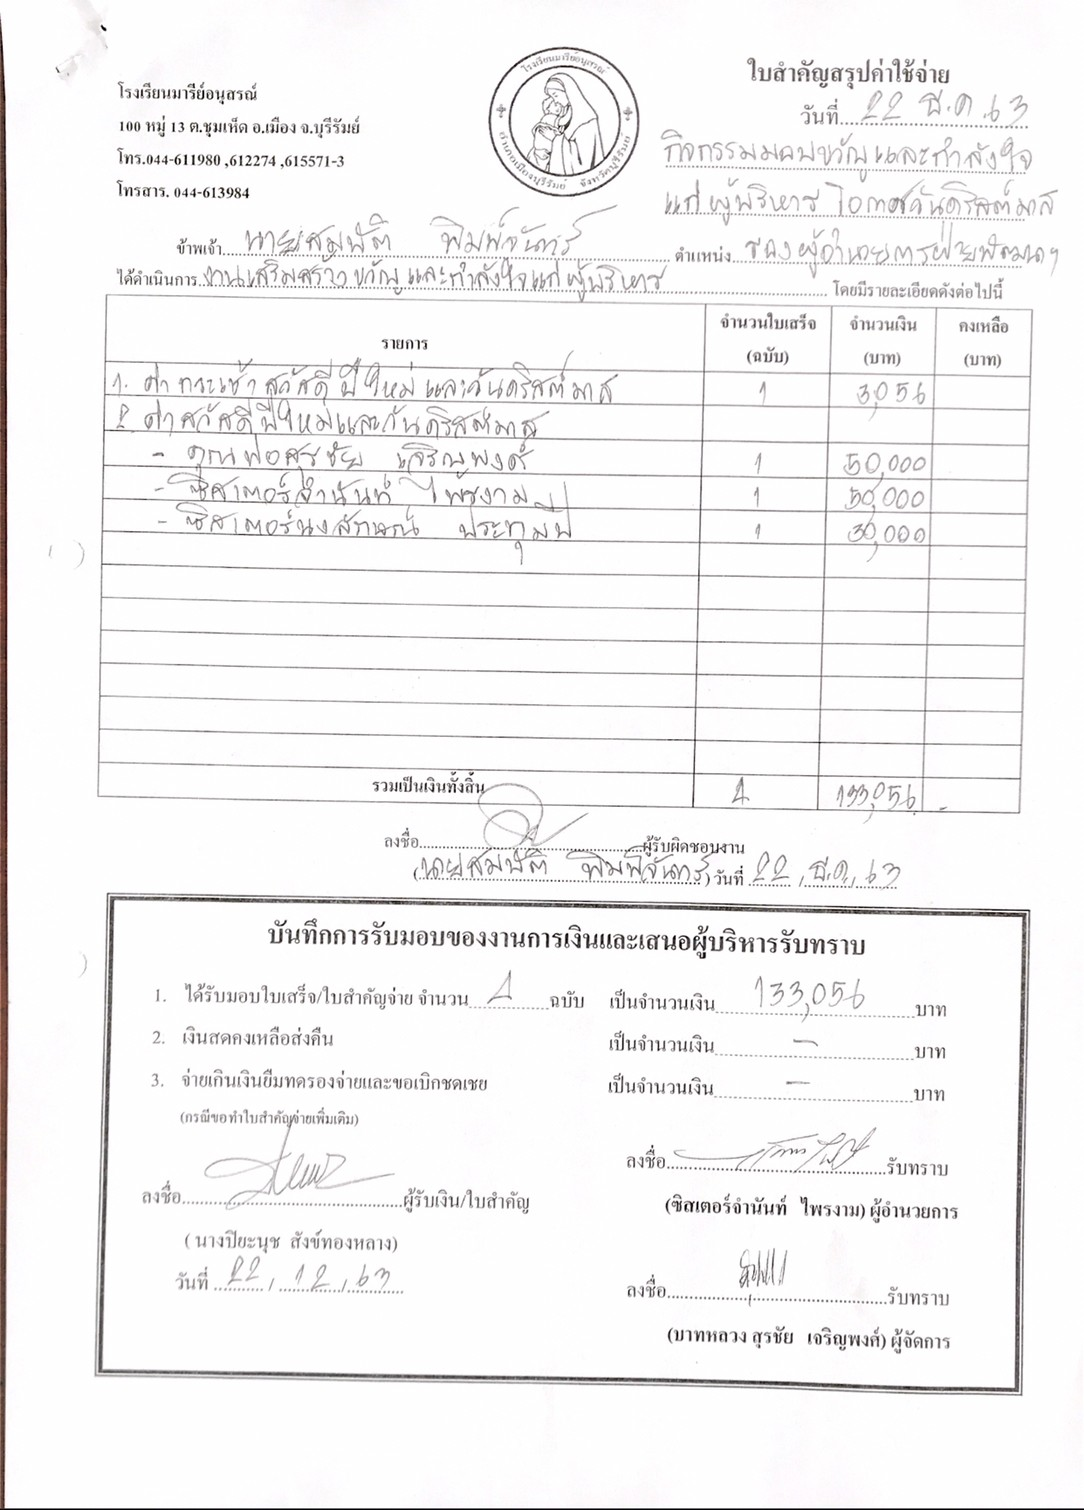 โรงเรียนมารีย์อนุสรณ์
100 หมู่ 13 ต.ชุมเห็ด อ.เมือง จ.บุรีรัมย์
โทร.044-611980 ,612274 ,615571-3
โทรสาร. 044-613984
โรงเรียนมารีย์อนุสรณ์
อำเภอเมืองบุรีรัมย์ จังหวัดบุรีรัมย์
ใบสำคัญสรุปค่าใช้จ่าย
วันที่ 22 ธ.ค. 63
กิจกรรมมอบขวัญและกำลังใจ
แก่ผู้บริหาร โอกาสวันคริสต์มาส
ข้าพเจ้า นายสมบัติ พิมพ์จันทร์ ตำแหน่ง รองผู้อำนวยการฝ่ายพัฒนาฯ
ได้ดำเนินการ งานเสริมสร้างขวัญและกำลังใจแก่ผู้บริหาร โดยมีรายละเอียดดังต่อไปนี้
รายการ จำนวนใบเสร็จ (ฉบับ) จำนวนเงิน (บาท) คงเหลือ (บาท)
1. ค่ากระเช้าสวัสดีปีใหม่และวันคริสต์มาส 1 3,056
2. ค่าสวัสดีปีใหม่และวันคริสต์มาส
- คุณพ่อสุรชัย เจริญพงศ์ 1 50,000
- ซิสเตอร์จำนันท์ ไพรงาม 1 50,000
- ซิสเตอร์นงลักษณ์ ประทุมปี 1 30,000
รวมเป็นเงินทั้งสิ้น 4 133,056 -
ลงชื่อ ผู้รับผิดชอบงาน
(นายสมบัติ พิมพ์จันทร์) วันที่ 22 , ธ.ค. , 63
บันทึกการรับมอบของงานการเงินและเสนอผู้บริหารรับทราบ
1. ได้รับมอบใบเสร็จ/ใบสำคัญจ่าย จำนวน 4 ฉบับ เป็นจำนวนเงิน 133,056 บาท
2. เงินสดคงเหลือส่งคืน เป็นจำนวนเงิน - บาท
3. จ่ายเกินเงินยืมทดรองจ่ายและขอเบิกชดเชย เป็นจำนวนเงิน - บาท
(กรณีขอทำใบสำคัญจ่ายเพิ่มเติม)
ลงชื่อ รับทราบ
ลงชื่อ ผู้รับเงิน/ใบสำคัญ
(ซิสเตอร์จำนันท์ ไพรงาม) ผู้อำนวยการ
( นางปิยะนุช สังข์ทองหลาง)
วันที่ 22 / 12 / 63
ลงชื่อ รับทราบ
(บาทหลวง สุรชัย เจริญพงศ์) ผู้จัดการ